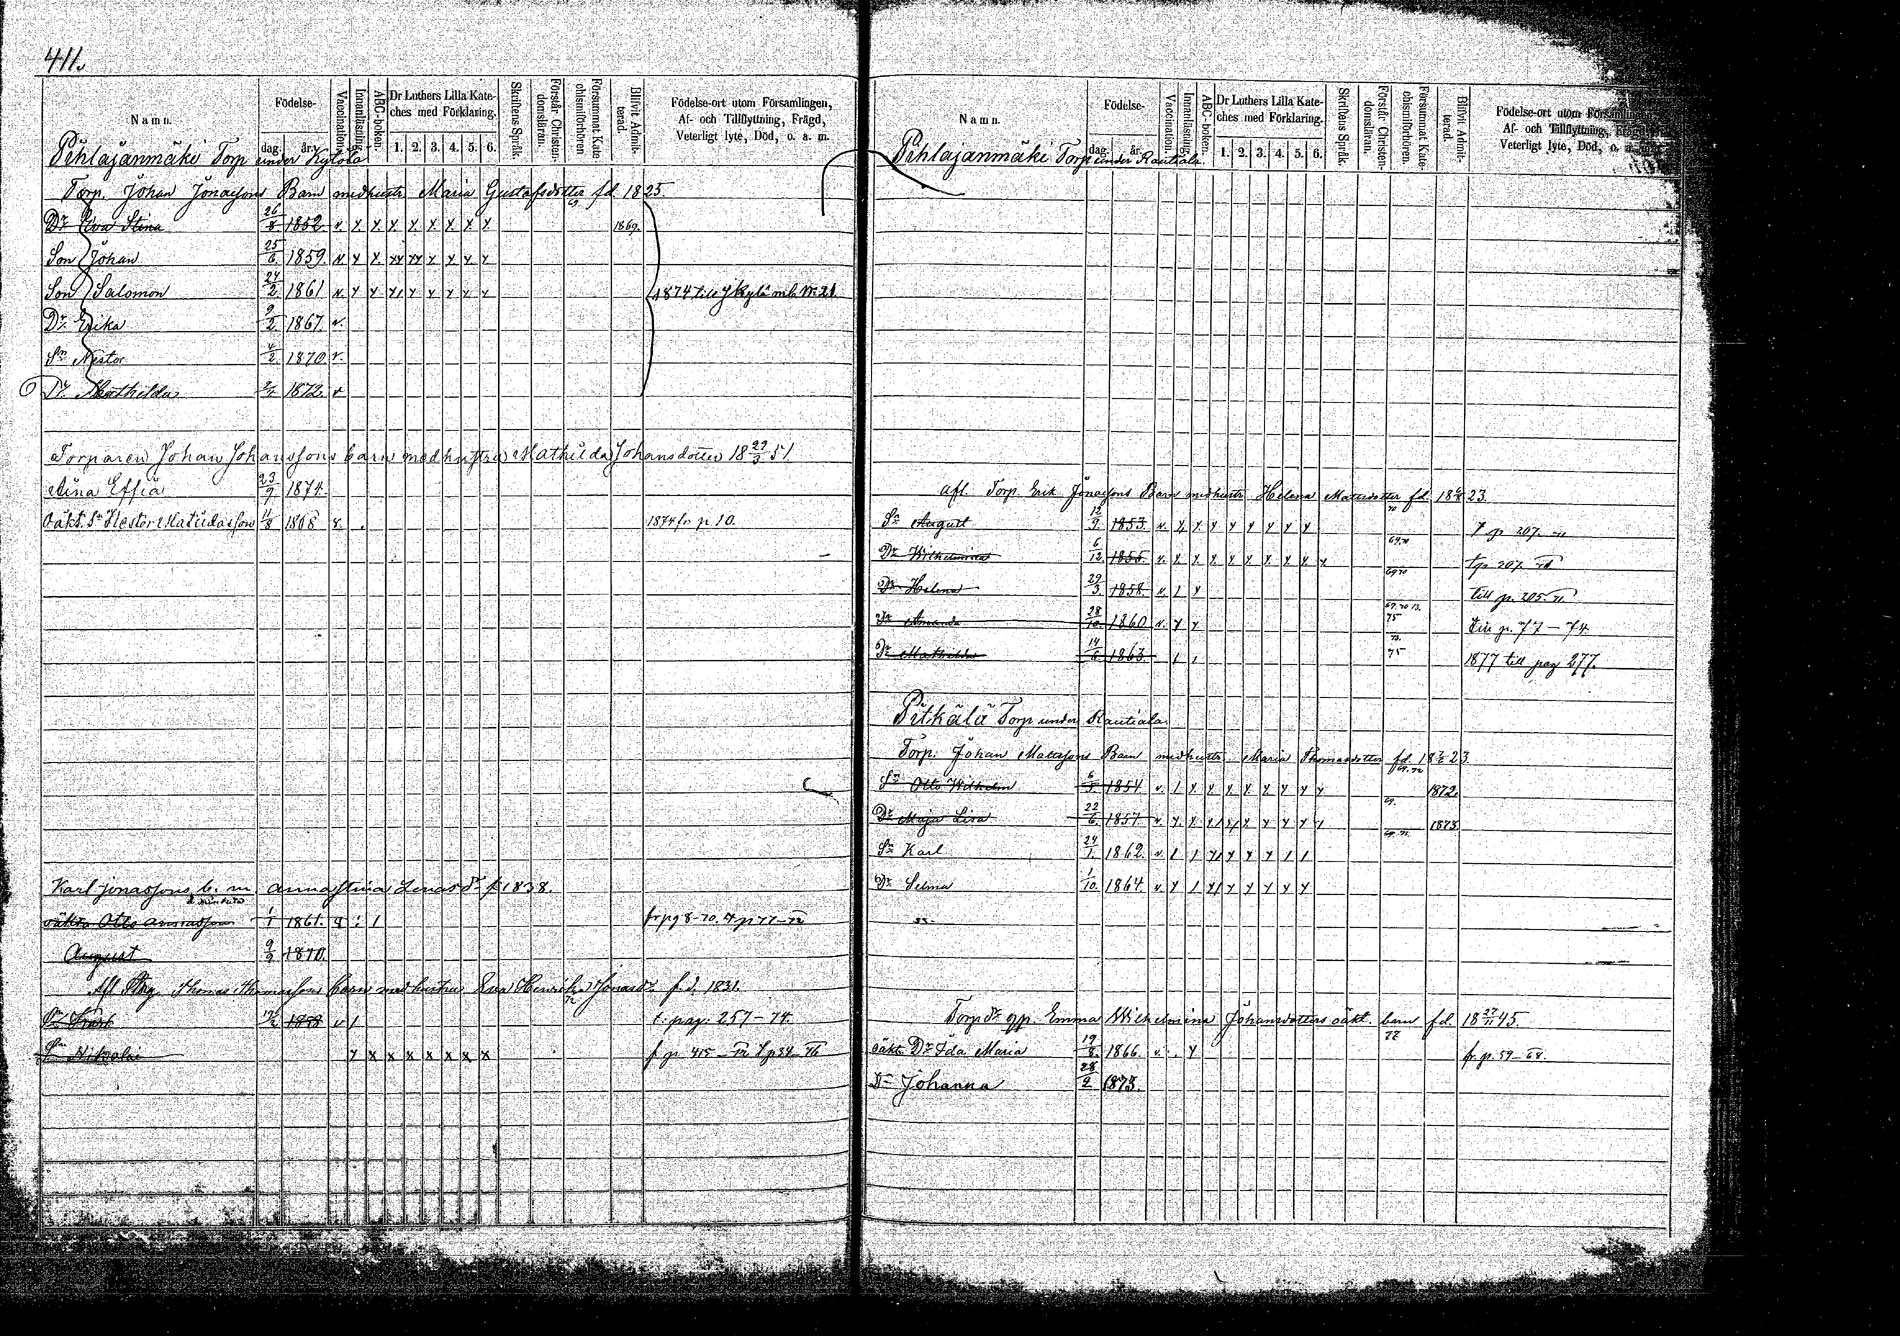 411.
Namn.
Födelse-
dag. år.
Vaccination.
Innanläsning.
ABC-boken.
Dr Luthers Lilla Kate-
ches med Förklaring.
1. 2. 3. 4. 5. 6.
Skriftens Språk.
Förstår Christen-
domsläran.
Försummat Kate-
chismiförhören
Blifvit Admit-
terad.
Födelse-ort utom Församlingen,
Af- och Tillflyttning, Frägd,
Veterligt lyte, Död, o. a. m.
Pihlajanmäki Torp under
Torp. Johan Jönassons Barn med hustr. Maria Gustafsdotter fd. 1825.
Dr Eva Stina 26/8 1852 v. x x x x x x x x 1869.
Son Johan 25/6 1859. v x x. xx xx x x x x
Son Salomon 24/2 1861 v. x x x x x x x x 1874 till Jkylä mb. No 21.
Dr. Erika 9/2 1867. v.
Sn Nestor 4/2 1870 v.
Dr. Mathilda 1872. v
Torparen Johan Johanssons barn med hustru Mathilda Johansdotter 18 29/3 51
Aina Effia 23/9 1874.
Oäkt. Sn Nestor Matildasson 11/8 1868 v. 1874 fr p 10.
Karl Jonassons b. m. Anna Stina d 1838.
oäkta Otto Annasson 1/1 1861. fr pg 8-70. t p 77-72
August 9/9 1870.
Afl Thomas Thomasson barn med hustru Eva Henrika Jonasdr f.d. 1831.
t. pag: 257-74.
Sn Nikolai x x x x x x x x f p. 415-72 t p 34-76
Namn.
Födelse-
dag. år.
Vaccination.
Innanläsning.
ABC-boken.
Dr Luthers Lilla Kate-
ches med Förklaring.
1. 2. 3. 4. 5. 6.
Skriftens Språk.
Förstår Christen-
domsläran.
Försummat Kate-
chismiförhören.
Blifvit Admit-
terad.
Födelse-ort utom Församlingen,
Af- och Tillflyttning, Frägd,
Veterligt lyte, Död, o. a. m.
Pihlajanmäki Torp under Rautiala
Afl. Torp. Erik Jönassons Barn med hustr. Helena Mattsdotter fd. 18 23.
Sn August 12/9. 1853. v. x x x x x x x x 70 t p 207.
Dr Wilhelmina 6/12. 1855. v. x x x x x x x x x 69.70 t p. 207.
Dr Helena 29/3. 1858. v. 1 x 69 70 till p. 205-71.
Dr Amanda 28/10 1860 v. x x 69.70 73. 75 till p. 77-74.
Dr Mathilda 14/6 1863. 1 1 73. 75 1877 till pag 277.
Pitkälä Torp under Rautiala.
Torp. Johan Mattssons Barn med hustr. Maria Thomasdotter fd. 18 23.
Sn Otto Wilhelm 1854 v. 1 x x x x x x x x 69.72 1872.
Dr Maja Lisa 22/6. 1857. v. x x x x x x x x 69. 1873
Sn Karl 24/1. 1862. v. 1 1 x x x x 1 1
Dr Selma 1/10. 1864. v. x 1 x x x x x x
Torp dr opp. Emma Wilhelmina Johansdotters oäkt. barn fd. 18 27/11 45.
oäkt. Dr Ida Maria 19/8. 1866. v. x 72 fr. p. 59-68.
Dr Johanna 28/2 1873.